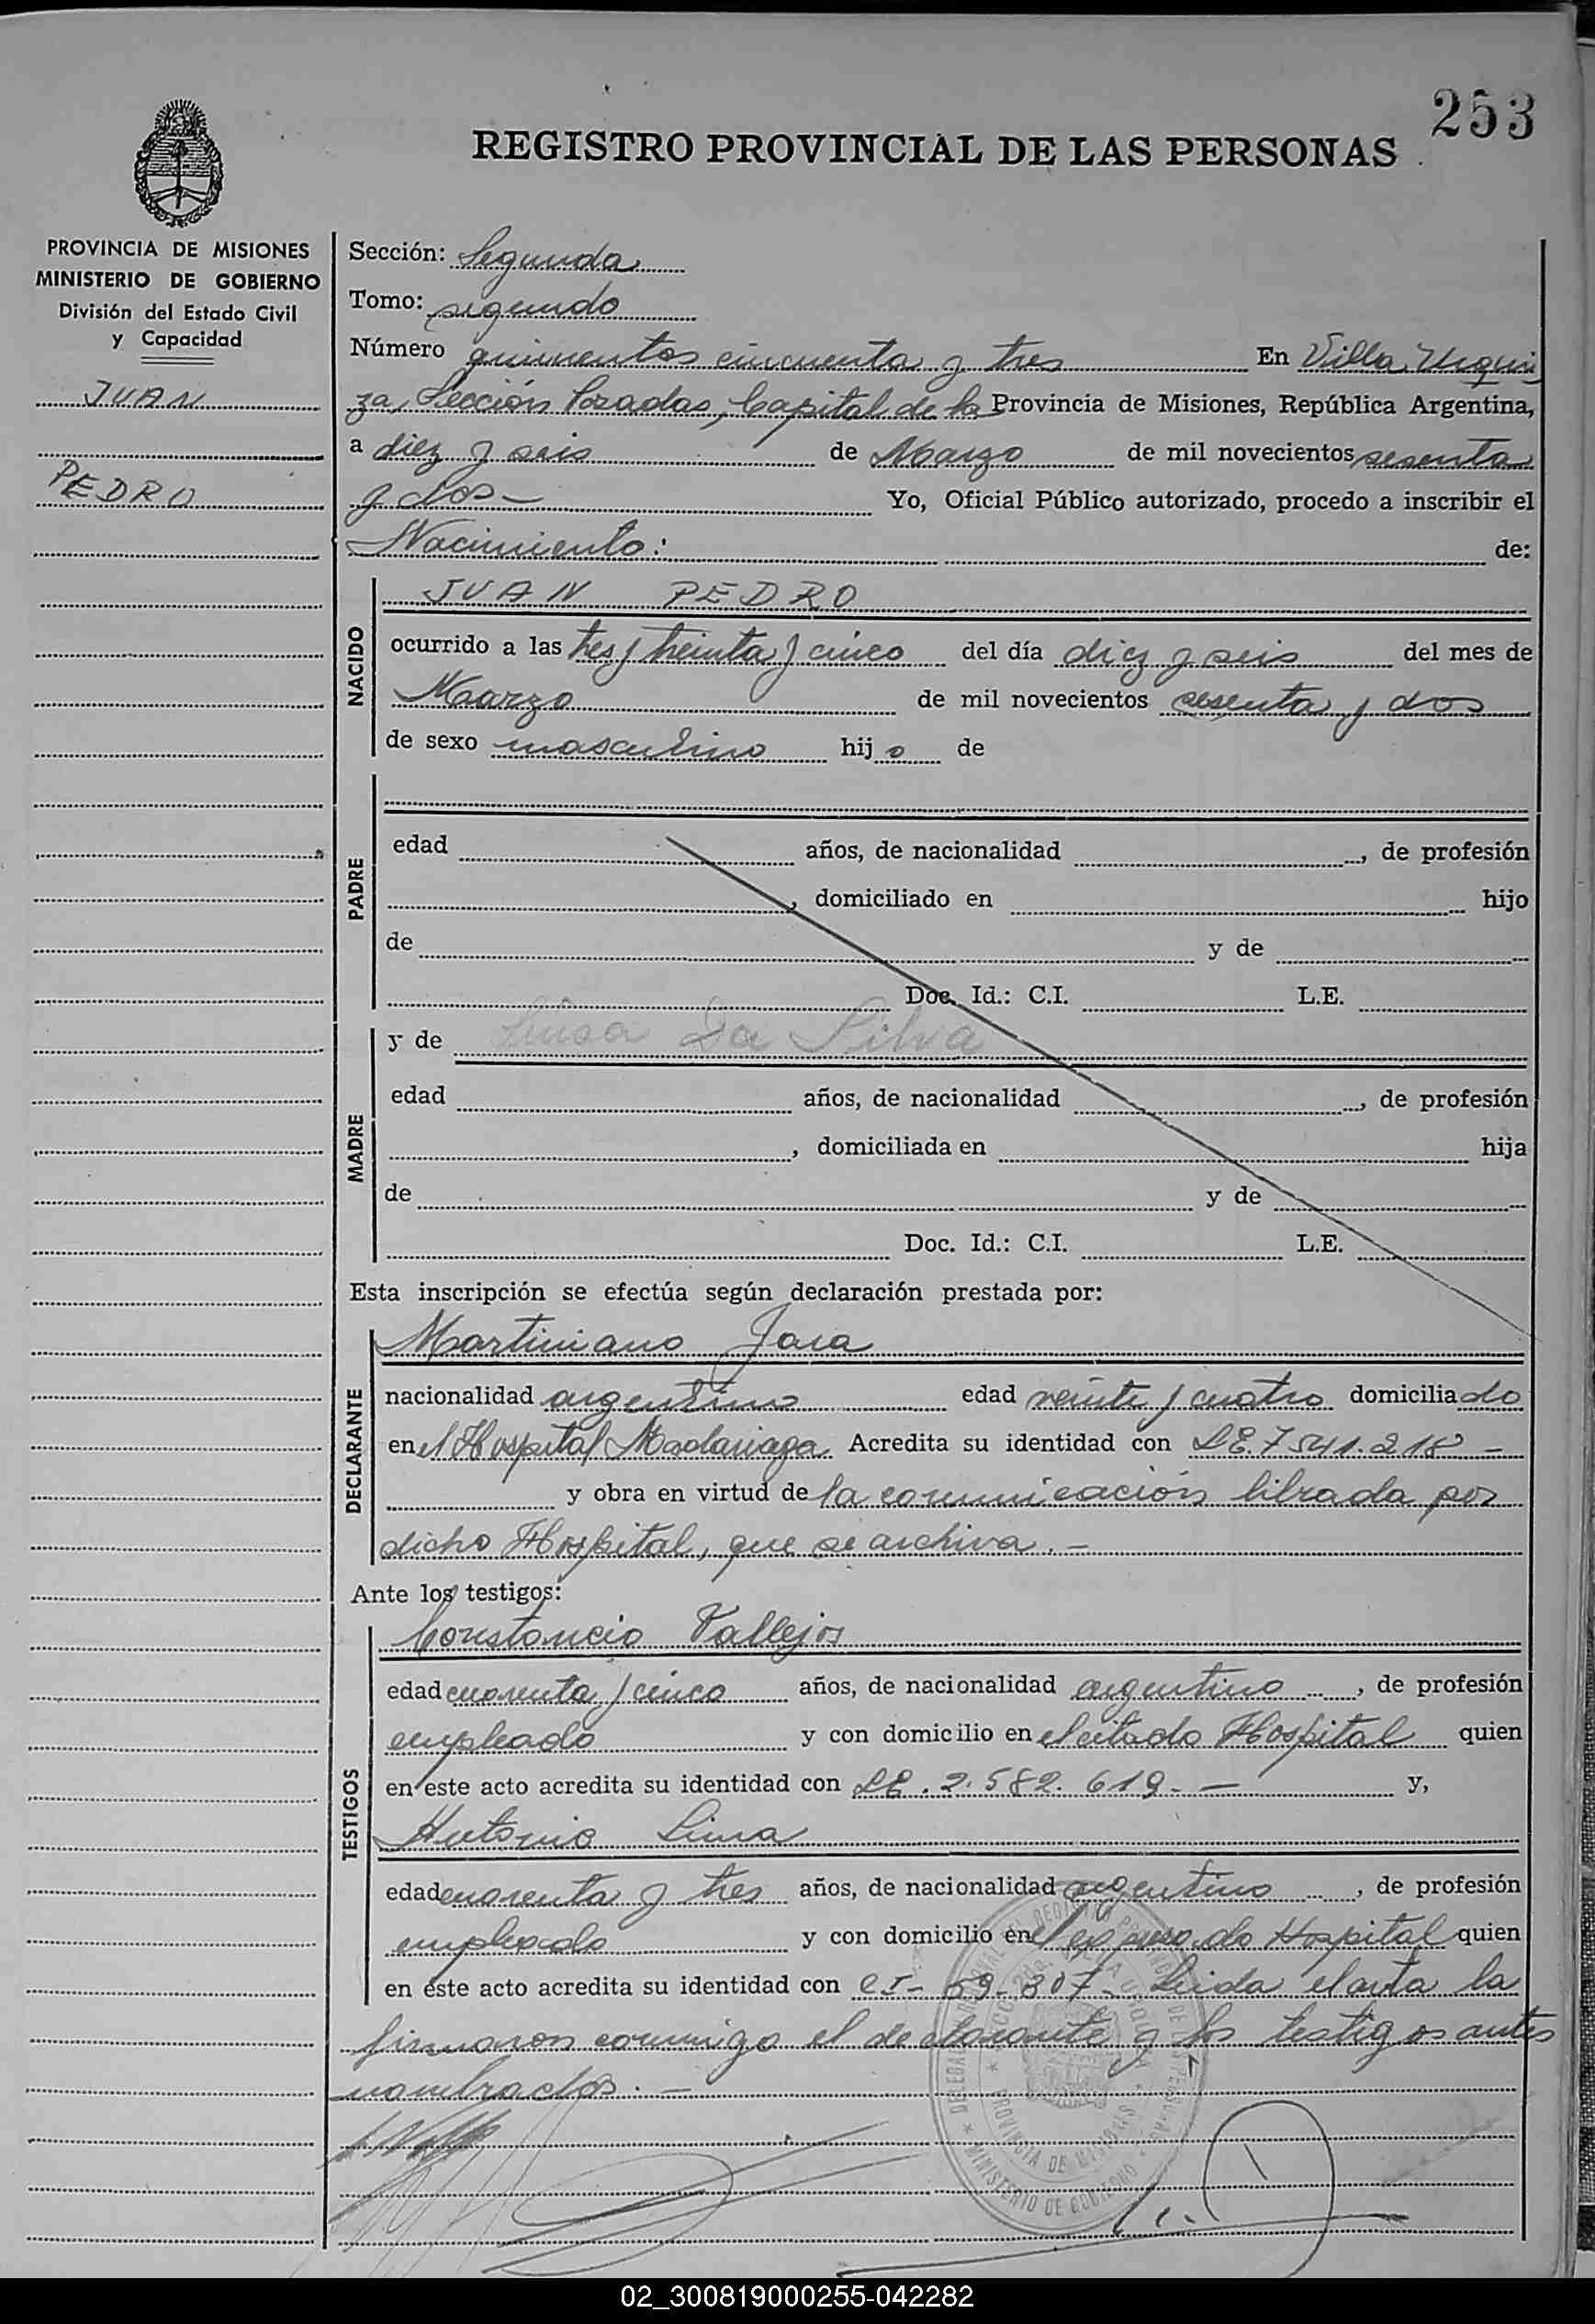 253
REGISTRO PROVINCIAL DE LAS PERSONAS
PROVINCIA DE MISIONES
MINISTERIO DE GOBIERNO
División del Estado Civil
y Capacidad
JUAN
PEDRO
Sección: Segunda
Tomo: segundo
Número quinientos cincuenta y tres En Villa Urqui
za, Sección Posadas, Capital de la Provincia de Misiones, República Argentina,
a diez y seis de Marzo de mil novecientos sesenta
y dos — Yo, Oficial Público autorizado, procedo a inscribir el
Nacimiento: de:
NACIDO
JUAN PEDRO
ocurrido a las tres y treinta y cinco del día diez y seis del mes de
Marzo de mil novecientos sesenta y dos
de sexo masculino hijo de
PADRE
edad años, de nacionalidad , de profesión
, domiciliado en hijo
de y de
Doc. Id.: C.I. L.E.
MADRE
y de Luisa Da Silva
edad años, de nacionalidad , de profesión
, domiciliada en hija
de y de
Doc. Id.: C.I. L.E.
Esta inscripción se efectúa según declaración prestada por:
DECLARANTE
Martiniano Jara
nacionalidad argentino edad veinte y cuatro domiciliado
en el Hospital Madariaga. Acredita su identidad con LE. 7541.218 —
y obra en virtud de la comunicación librada por
dicho Hospital, que se archiva. —
Ante los testigos:
TESTIGOS
Constancio Vallejos
edad cuarenta y cinco años, de nacionalidad argentino , de profesión
empleado y con domicilio en el citado Hospital quien
en este acto acredita su identidad con LE. 2.582.619. — y,
Antonio Lima
edad cuarenta y tres años, de nacionalidad argentino , de profesión
empleado y con domicilio en el expresado Hospital quien
en éste acto acredita su identidad con CI- 59-307. Leida el acta la
firmaron conmigo el declarante y los testigos antes
nombrados. —
PROVINCIA DE MISIONES
MINISTERIO DE GOBIERNO
02_300819000255-042282